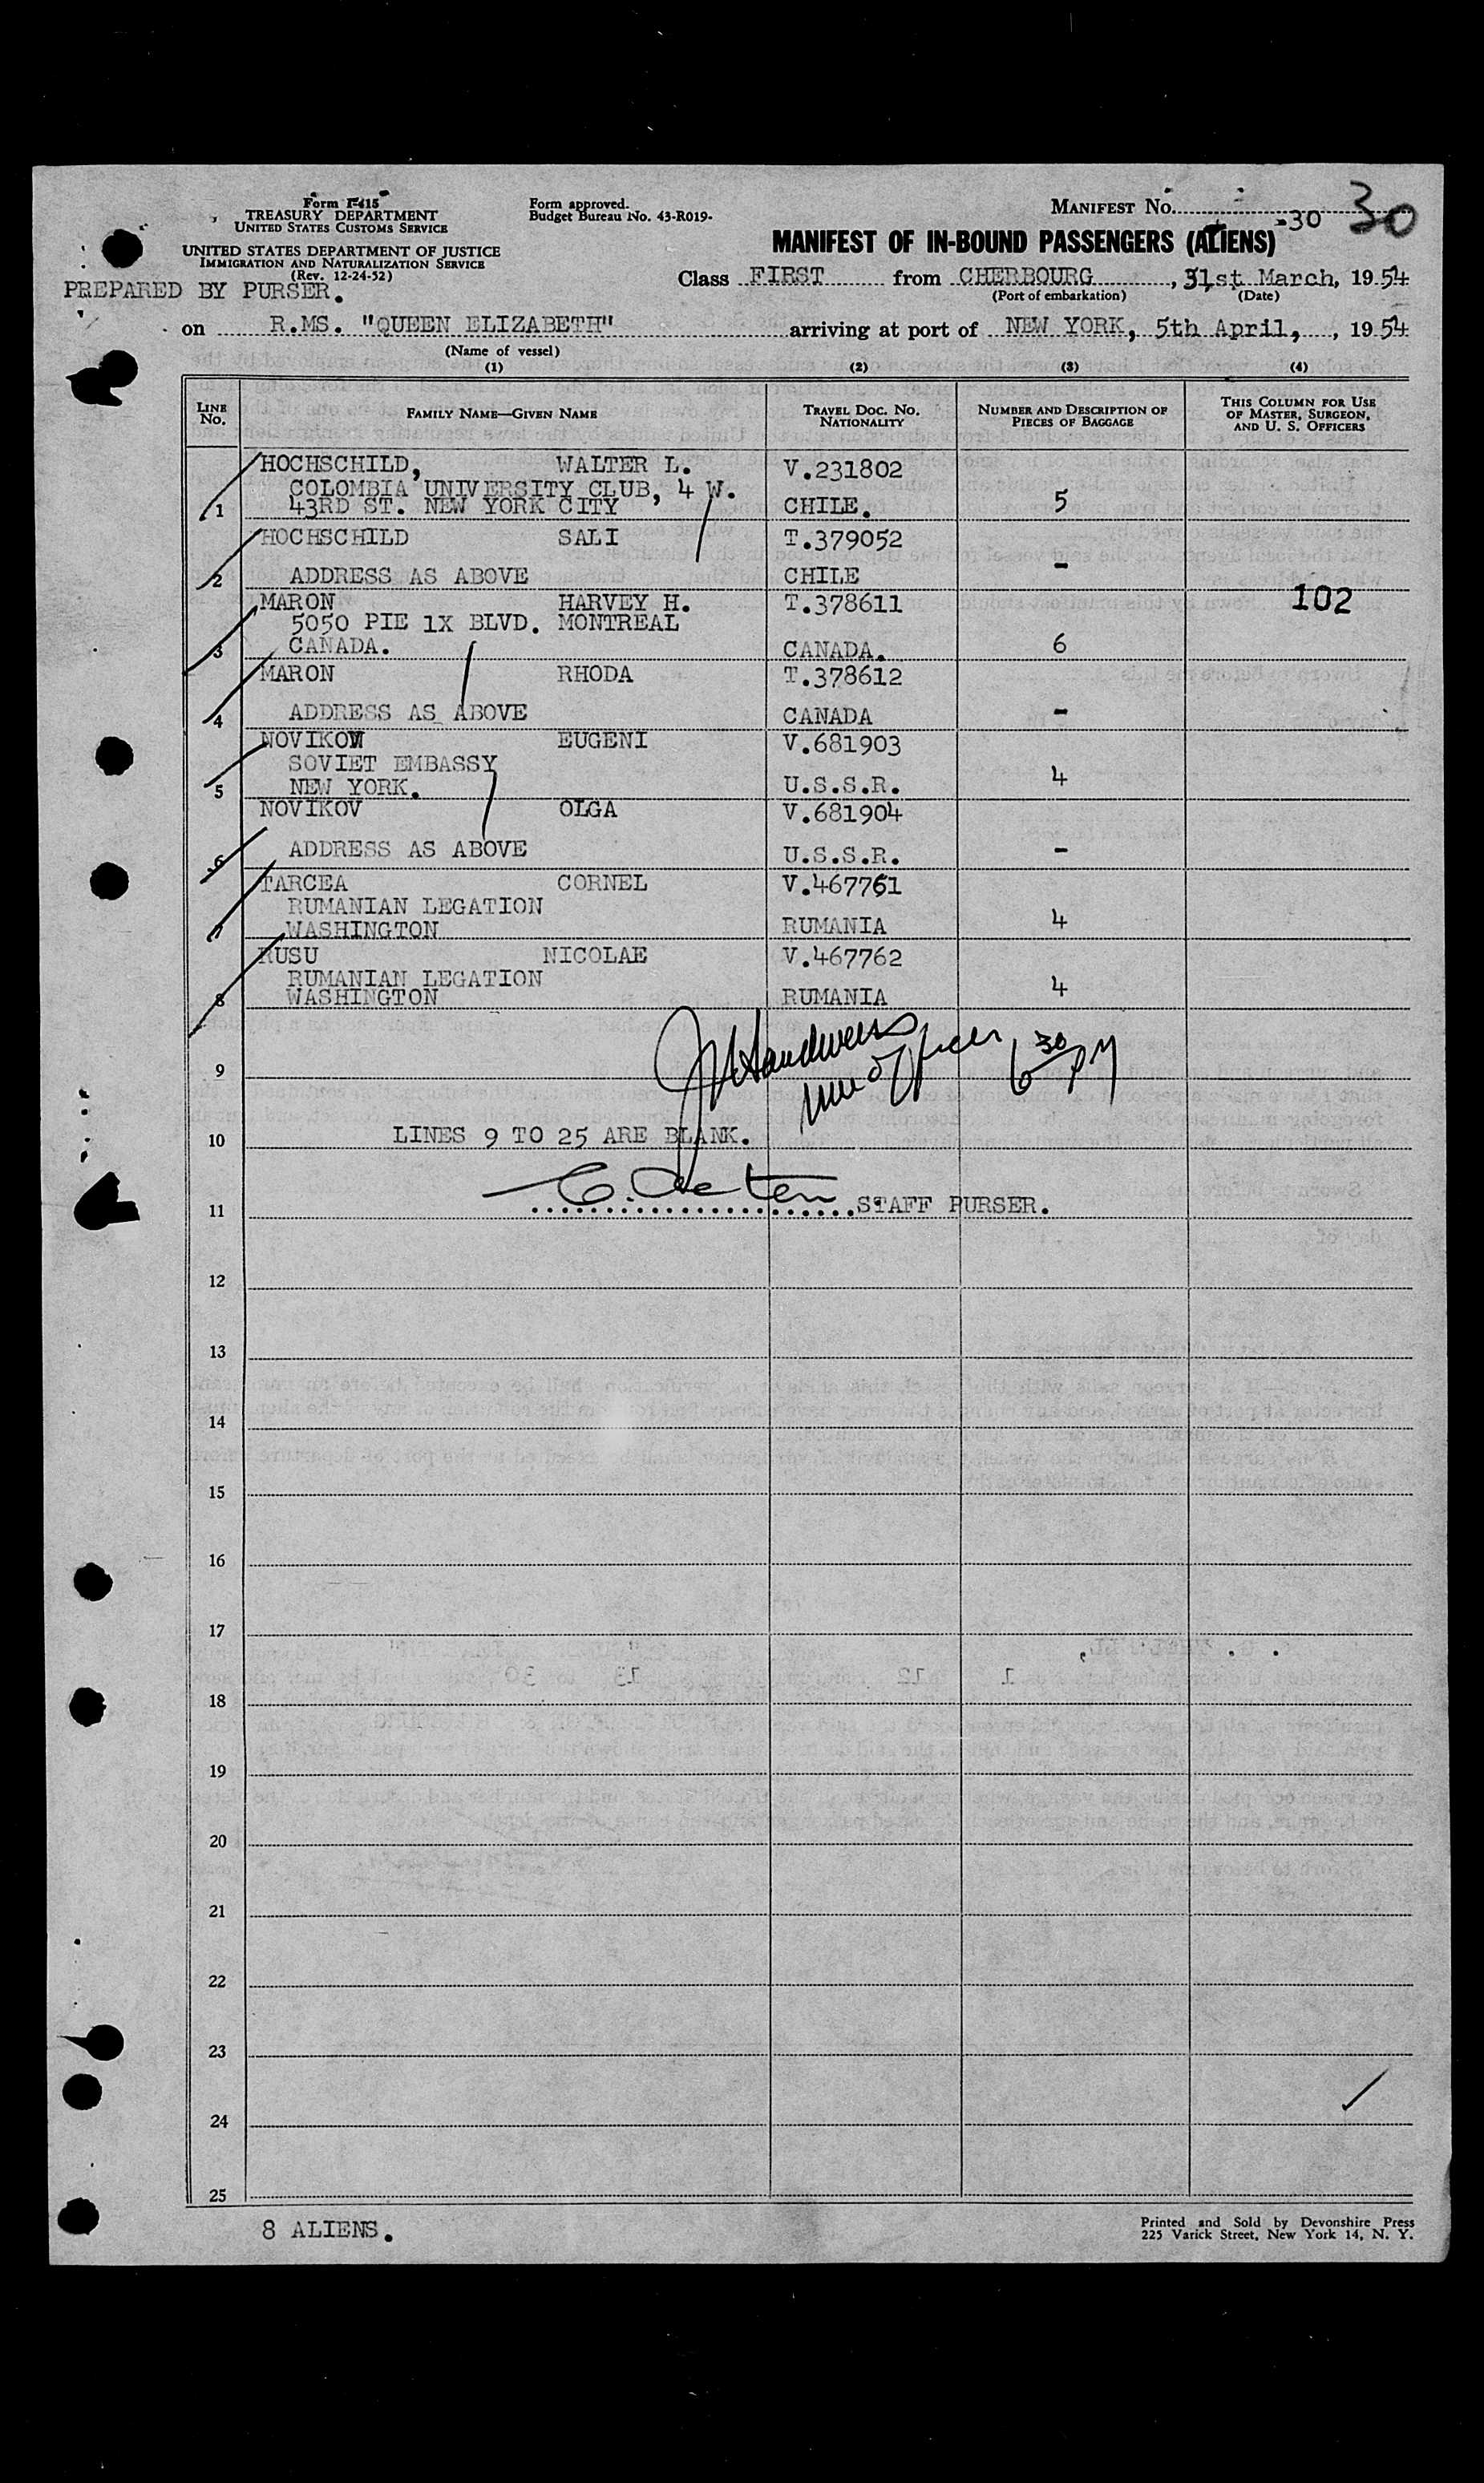 Form I-415
TREASURY DEPARTMENT
UNITED STATES CUSTOMS SERVICE
UNITED STATES DEPARTMENT OF JUSTICE
IMMIGRATION AND NATURALIZATION SERVICE
(Rev. 12-24-52)
PREPARED BY PURSER.
Form approved.
Budget Bureau No. 43-R019-
MANIFEST No. -30 30
MANIFEST OF IN-BOUND PASSENGERS (ALIENS)
Class FIRST from CHERBOURG, 31st March, 1954
(Port of embarkation) (Date)
on R.MS. "QUEEN ELIZABETH" arriving at port of NEW YORK, 5th April, , 1954
(Name of vessel)
(1) (2) (3) (4)
LINE No. FAMILY NAME—GIVEN NAME TRAVEL DOC. No. NATIONALITY NUMBER AND DESCRIPTION OF PIECES OF BAGGAGE THIS COLUMN FOR USE OF MASTER, SURGEON, AND U. S. OFFICERS
HOCHSCHILD, WALTER L. V.231802
COLOMBIA UNIVERSITY CLUB, 4 W.
1 43RD ST. NEW YORK CITY CHILE. 5
HOCHSCHILD SALI T.379052
2 ADDRESS AS ABOVE CHILE -
MARON HARVEY H. T.378611 102
5050 PIE 1X BLVD. MONTREAL
3 CANADA. CANADA. 6
MARON RHODA T.378612
4 ADDRESS AS ABOVE CANADA -
NOVIKOV EUGENI V.681903
SOVIET EMBASSY
5 NEW YORK. U.S.S.R. 4
NOVIKOV OLGA V.681904
6 ADDRESS AS ABOVE U.S.S.R. -
TARCEA CORNEL V.467761
RUMANIAN LEGATION
7 WASHINGTON RUMANIA 4
RUSU NICOLAE V.467762
RUMANIAN LEGATION
8 WASHINGTON RUMANIA 4
9 officer 6 30 PM
10 LINES 9 TO 25 ARE BLANK.
11 STAFF PURSER.
12
13
14
15
16
17
18
19
20
21
22
23
24
25
8 ALIENS.
Printed and Sold by Devonshire Press
225 Varick Street, New York 14, N. Y.